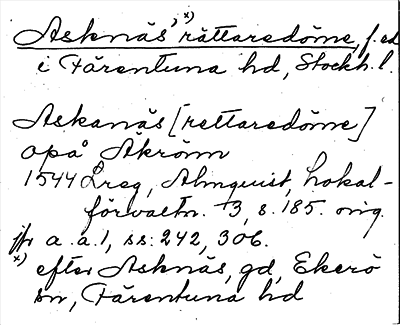 Asknäs' x) rättaredöme, f.d.
i Färentuna hd, Stockh. l.
Askanäs [rettaredöme]
opå Åkrönn
1544 Lreg, Almquist, Lokal-
förvaltn. 3, s. 185. orig.
jfr a.a. 1, ss. 242, 306.
x) efter Asknäs, gd, Ekerö
sn, Färentuna hd